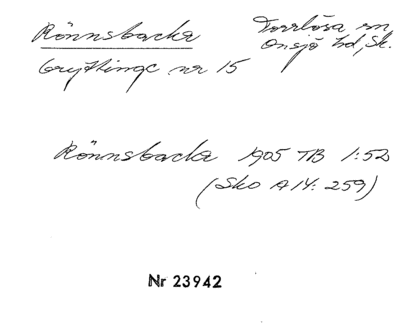 Rönnsbacka
Torrlösa sn
Onsjö hd, Sk.
Gryttinge nr 15
Rönnsbacka 1905 TB 1:52
(Sko A14: 259)
Nr 23942